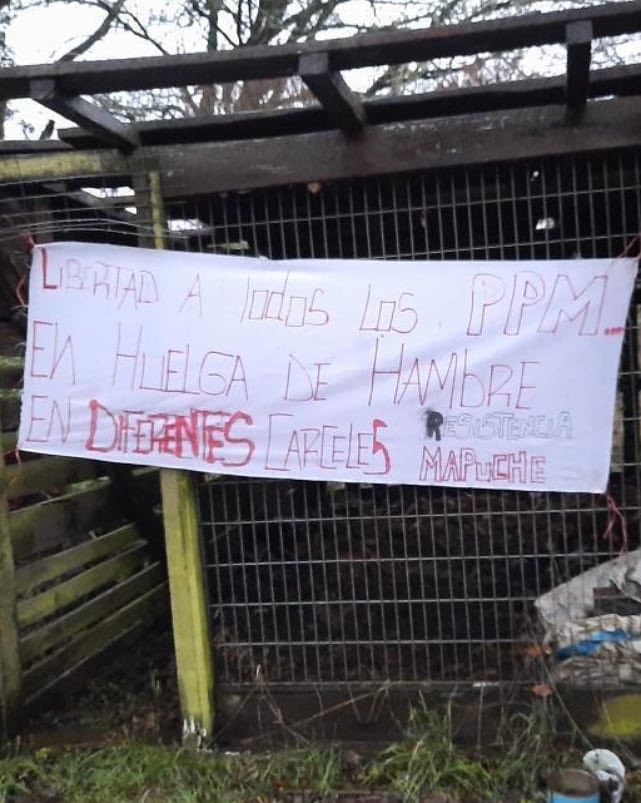 LIBERTAD A TODOS LOS PPM...
EN HUELGA DE HAMBRE
EN DIFERENTES CARCELES
RESISTENCIA
MAPUCHE